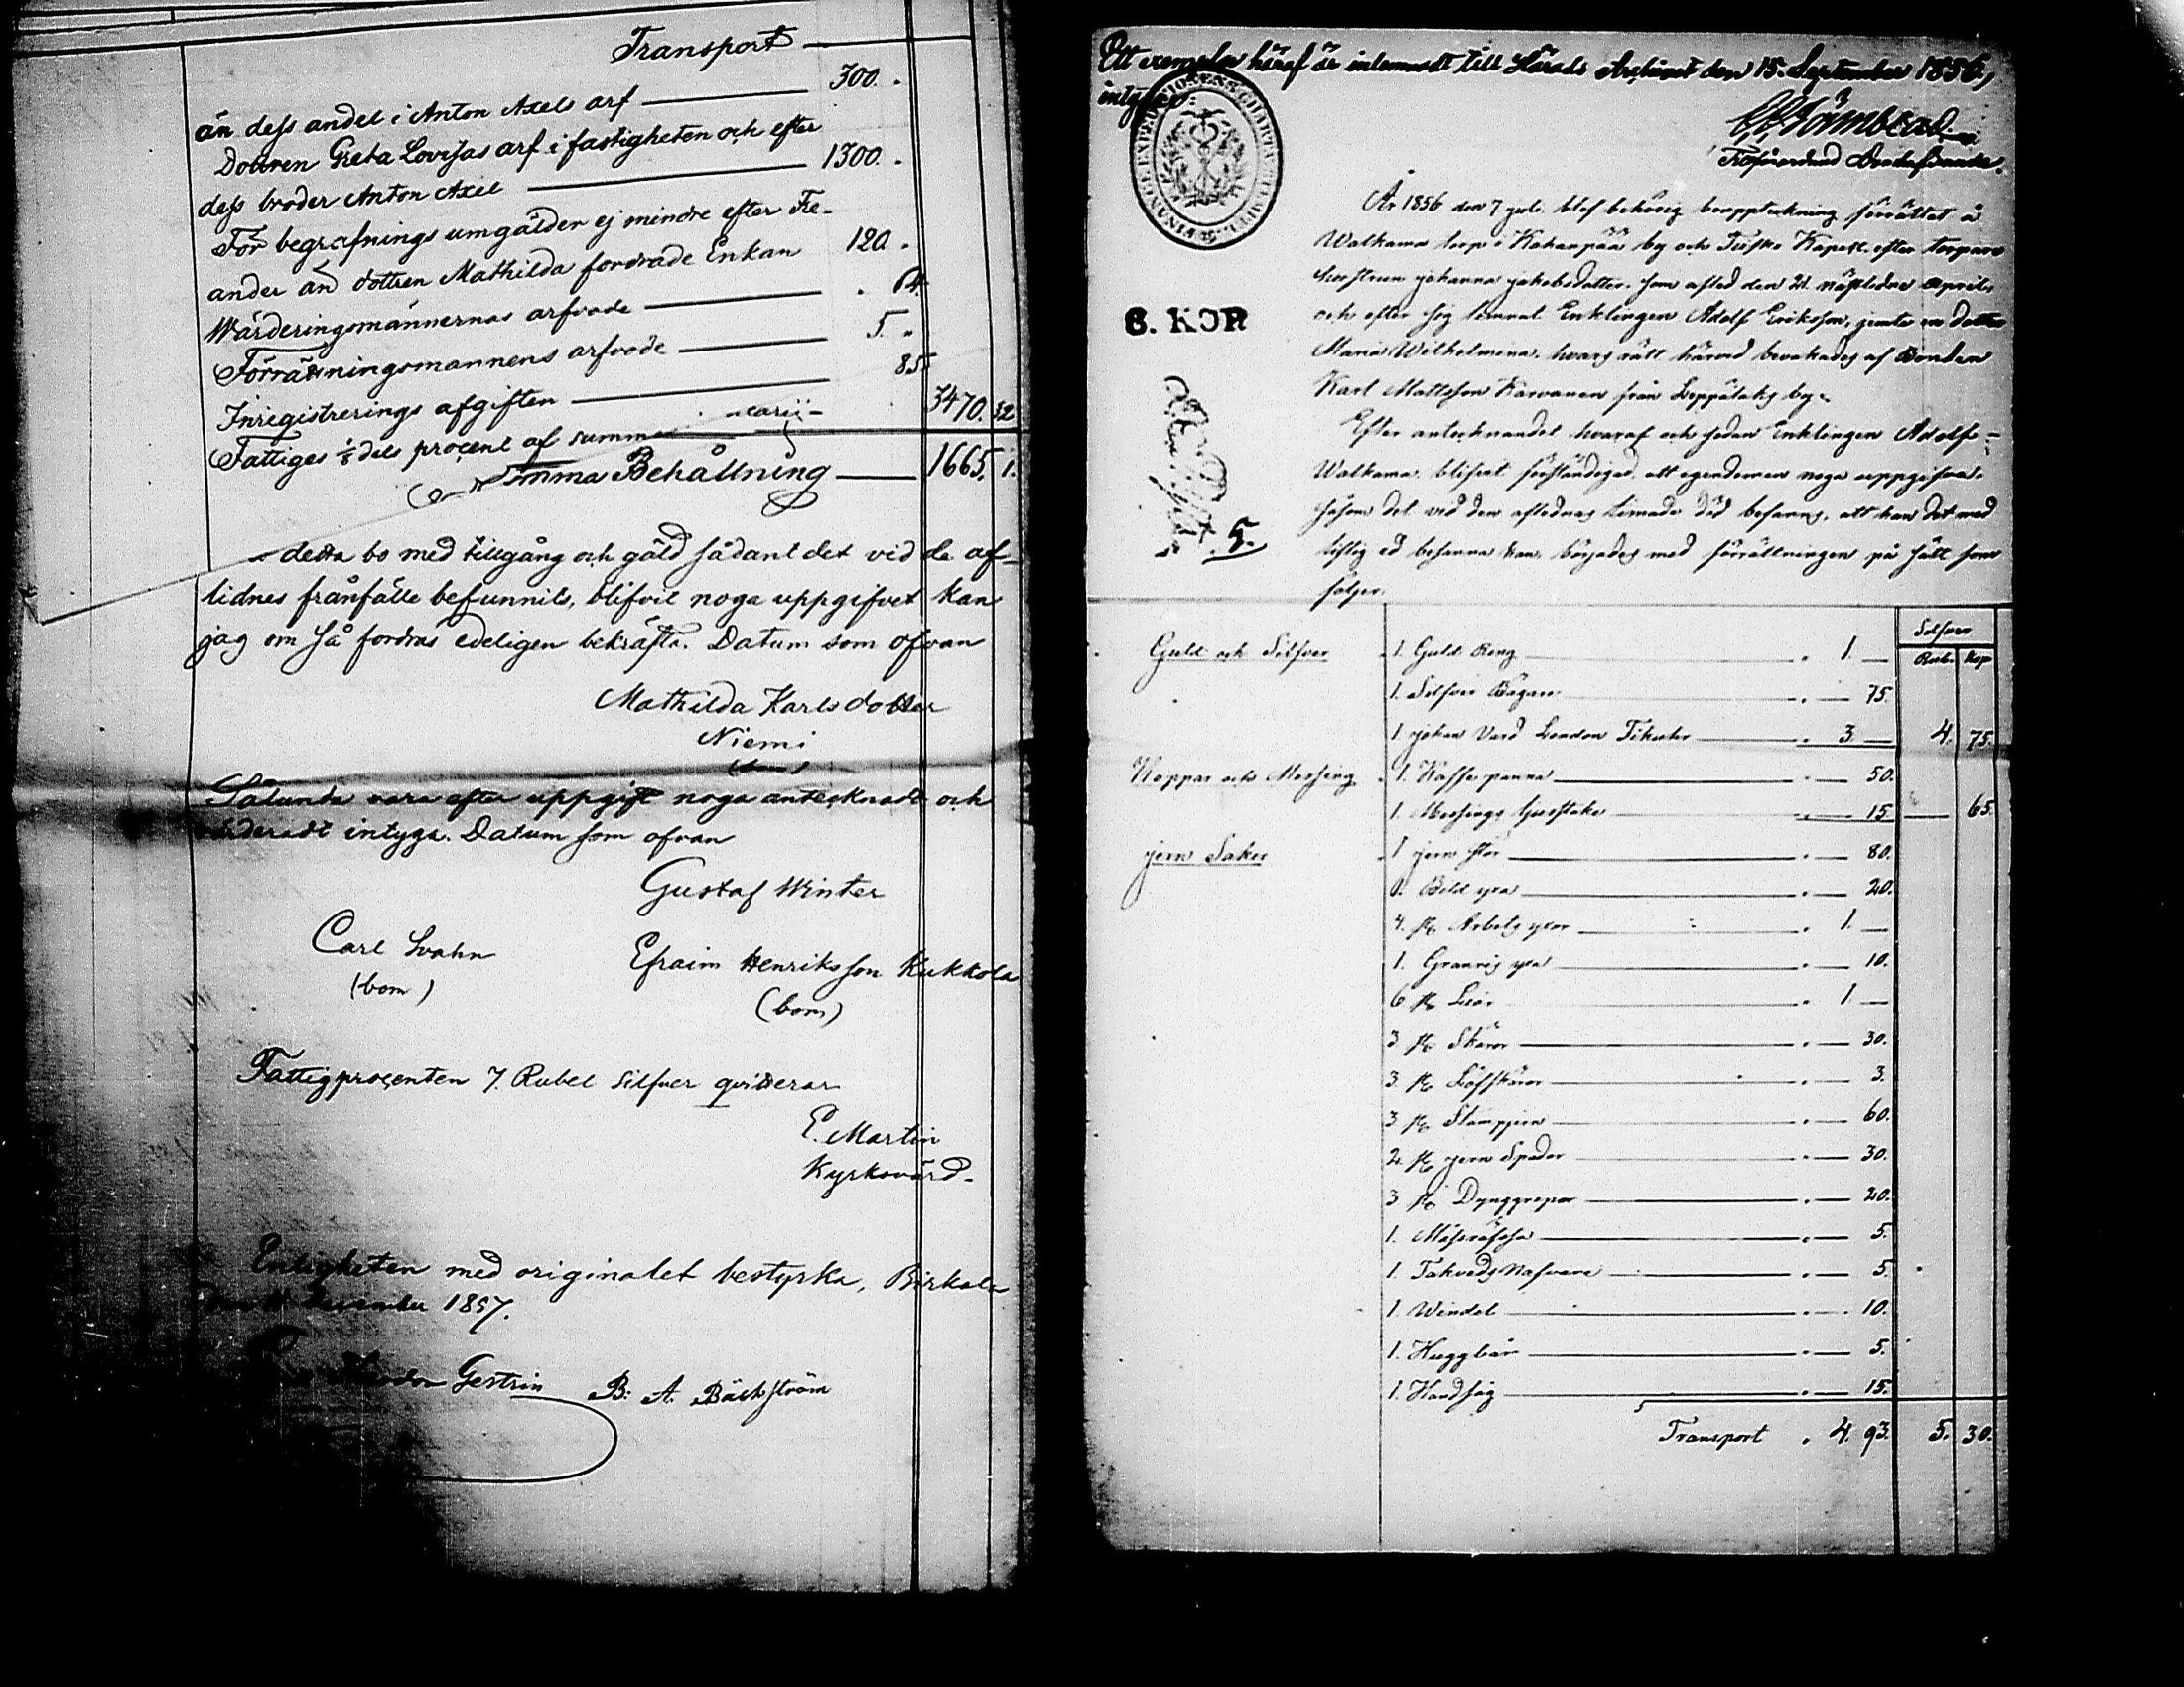 Transport
än dess andel i Anton Axels arf 300.
Dottren Greta Lovisas arf i fastigheten och efter
dess broder Anton Axel 1300.
För begrafnings umgälder ej mindre efter Fre-
ander än dottren Mathilda fordrade Enkan 120.
Wärderingsmännernas arfvode 64.
Förrättningsmannens arfvode 5.
Inregistrerings afgiften 85
Fattiges 1/8 dels procent af summa 3470. 32
Summa Behållning 1665. 1.
detta bo med tillgång och gäld sådant det vid de af-
lidnes frånfälle befunnits, blifvit noga uppgifvet kan
jag om så fordras edeligen bekräfta. Datum som ofvan
Mathilda Karlsdotter
Niemi
Sålunda vara efter uppgift noga antecknadt och
värderadt intyga. Datum som ofvan
Gustaf Winter
Carl Svahn Efraim Henriksson Kukkola
(bom) (bom)
Fattigprocenten 7. Rubel Silfver qvitterar
E. Martin
Kyrkovärd.
Enligheten med originalet bestyrka, Birkala
December 1857.
Gestrin B: A. Bäckström
Ett exemplar häraf är inlemnadt till Härads Archivet den 15. September 1856,
intygar:
6. KOP
5.
År 1856 den 7 Juli, blef behörig bouppteckning förrättad å
Walkama torp i Kahanpää by och Kapell, efter torpare
hustrun Johanna Jakobsdotter, som afled den 21 nästledne Aprils
och efter sig lemnat Enklingen Adolf Eriksson, jemte en dotter
Maria Wilhelmina, hvars rätt härvid bevakades af Bonden
Karl Mattsson Karvanen från Leppälaks by.
Efter antecknandet hvaraf och sedan Enklingen Adolf
Walkama, blifvit förständigad, att egendomen noga uppgifva
såsom det vid den aflednas timade död befanns, att han det med
liflig ed besanna kan, börjades med förrättningen på sätt som
följer.
Silfver
Rub. Kop
Guld och Silfver 1. Guld Ring 1. —
1. Silfver Bägare 75.
1 Johan Vard London Tikuhr 3 — 4. 75.
Koppar och Messing 1. Kaffe panna 50.
1. Messings ljusstake 15. 65.
Jern Saker 1 Jern stör 80.
Bild yxa 20.
4. st Arbets yxor 1. —
1. Granris yxa 10.
6 st Liar 1. —
3 st Skäror 30.
3. st Löfskäror 3.
3. st Stampjern 60.
2. st Jern Spador 30.
3 st Dynggrepar 20.
1. 5.
1. Takveds Nafvare 5.
1. Windel 10.
1. Huggbår 5.
1. Handsåg 15.
Transport 4. 93. 5. 30.